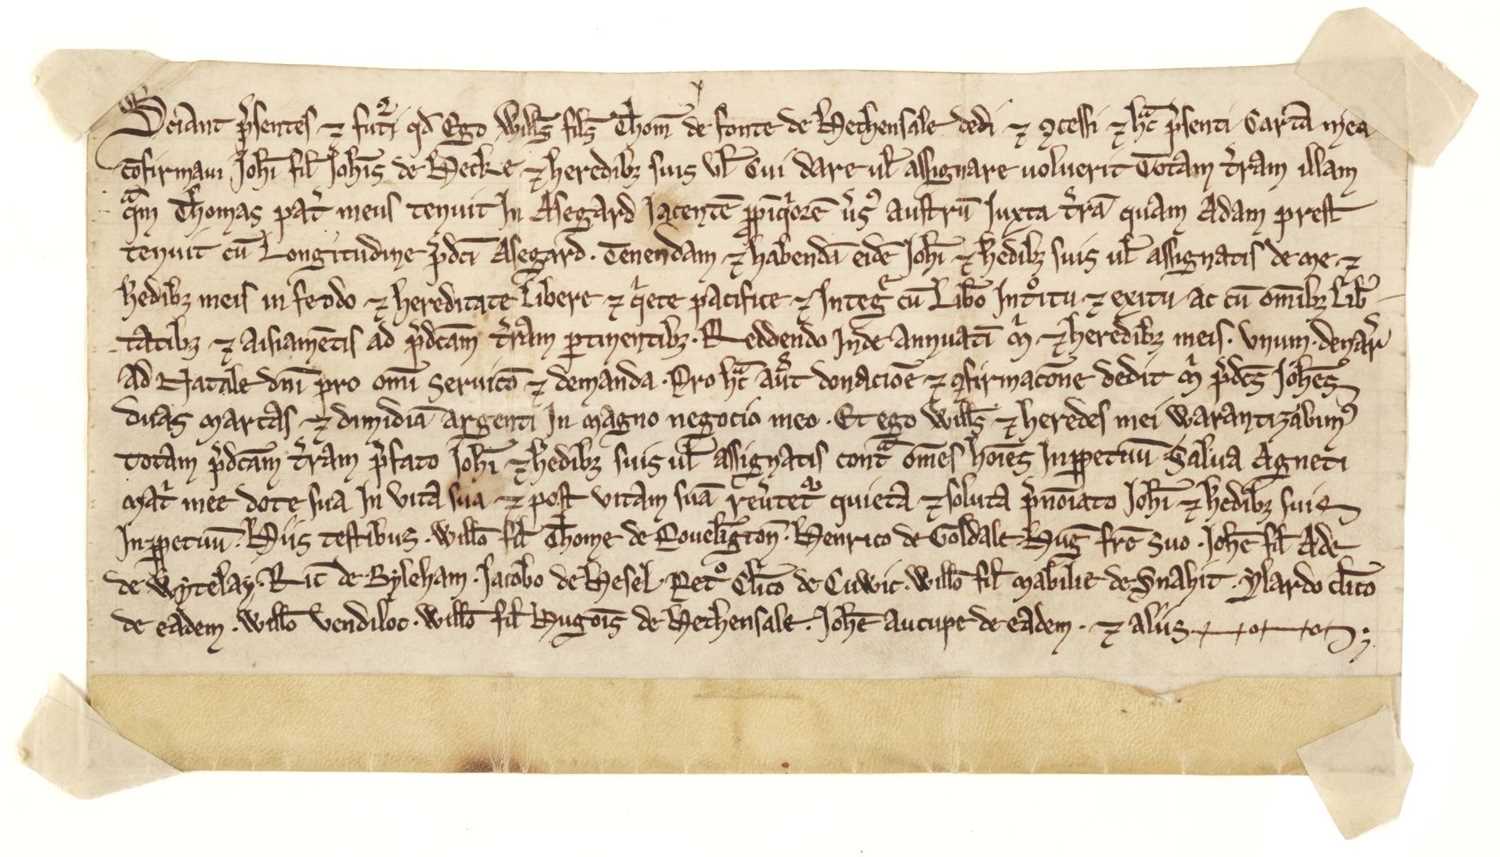 Sciant p̄sentes ⁊ fut̄i qd̄ Ego Willꝭ filꝭ Thom̄ de fonte de Hethensale dedi ⁊ ꝯcessi ⁊ hac p̄senti Carta mea
cōfirmaui Joh̄i fil̄ Joh̄is de Hecke ⁊ heredibꝫ suis ul̄ Cui dare ul̄ assignare uoluerit Totam t̄ram illam
qᵃm Thomas pat̄ meus tenuit In Asegard Iacentē ꝓpīqⁱorē ūsꝰ austrū Iuxta t̄rā quam Adam prest
tenuit cū Longitudine p̄dc̄i Asegard . Tenendam ⁊ habendā eidē Joh̄i ⁊ h̄edibꝫ suis ul̄ assignatis de me ⁊
h̄edibꝫ meis in feodo ⁊ hereditate libere ⁊ qⁱete pacifice ⁊ Integr̄ cū Lib̄o Intᵒitu ⁊ exitu ac cū om̄ibꝫ lib̄
tatibꝫ ⁊ aisiamētis ad p̄dc̄am t̄ram ꝑtinentibꝫ . Reddendo Inde Annuatī mⁱ ⁊ heredibꝫ meis . unum . denar̄
Ad Natale dn̄i pro om̄i seruicō ⁊ demanda . Pro hac aut̄ donacioē ⁊ ꝯfirmacōne dedit mⁱ p̄dc̄s Joh̄es
duas marcas ⁊ dimidiā argenti In magno negocio meo . Et ego Willꝭ ⁊ heredes mei Warantizabimꝰ
totam p̄dc̄am t̄ram p̄fato Joh̄i ⁊ h̄edibꝫ suis ul̄ assignatis contᵃ om̄es hoīes Inꝑpetuū Salua Agneti
mat̄ mee dote sua In vita sua ⁊ post vitam suā reūtetᵘʳ quieta ⁊ soluta p̄noīato Joh̄i ⁊ h̄edibꝫ suis
Inꝑpetuū . Hiis testibus . Willō fil̄ Thome de Pouelīgton̄ . Henrico de Goldale . Huḡ fr̄e suo . Joh̄e fil̄ Ade
de Wytelay . Ric̄ de Byleham . Jacobo de Hesel . Petᵒ Cl̄ico de Cuwic . Willō fil̄ Mabilie de Snahit . Ylardo cl̄ico
de eadem . Willō Vendiloc . Willō fil̄ Hugōis de Hethensale . Joh̄e Aucupe de eadem . ⁊ aliis